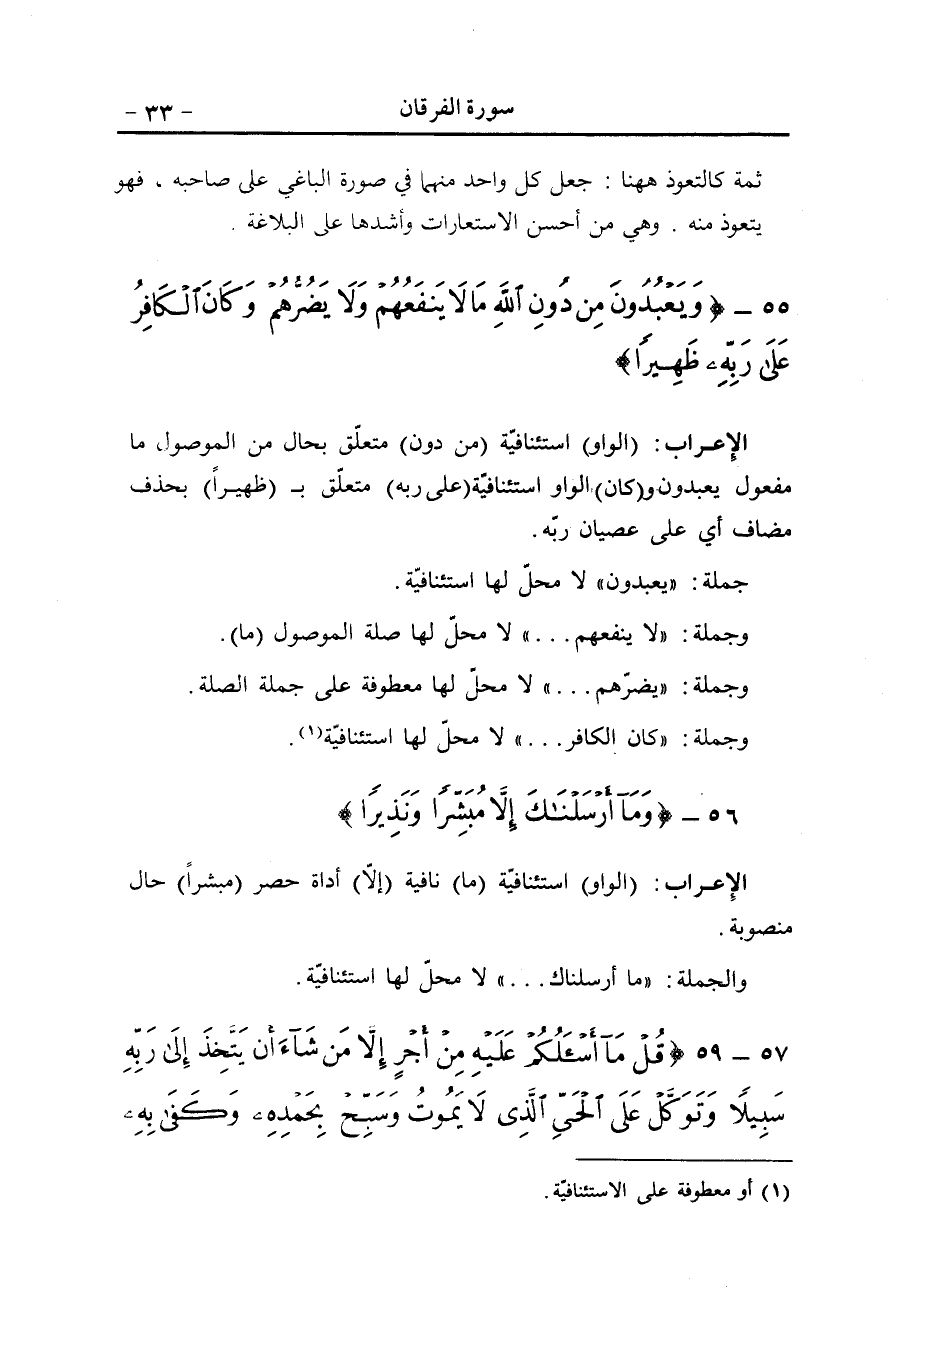 سورة الفرقان - ٣٣ -
ثمة كالتعوذ ههنا : جعل كل واحد منهما في صورة الباغي على صاحبه ، فهو
يتعوذ منه . وهي من أحسن الاستعارات وأشدها على البلاغة .
٥٥ ـ ﴿ وَيَعْبُدُونَ مِن دُونِ ٱللَّهِ مَا لَا يَنفَعُهُمْ وَلَا يَضُرُّهُمْ وَكَانَ ٱلْكَافِرُ
عَلَىٰ رَبِّهِۦ ظَهِيرًا﴾
الإعـراب: (الواو) استئنافيّة (من دون) متعلّق بحال من الموصول ما
مفعول يعبدون و(كان) الواو استئنافيّة(على ربه) متعلّق بـ (ظهيـراً) بحذف
مضاف أي على عصيان ربّه.
جملة: «يعبدون» لا محلّ لها استئنافيّة.
وجملة: «لا ينفعهم...» لا محلّ لها صلة الموصول (ما).
وجملة: «يضرّهم...» لا محلّ لها معطوفة على جملة الصلة.
وجملة: «كان الكافر...» لا محلّ لها استئنافيّة(١).
٥٦ ـ ﴿ وَمَآ أَرْسَلْنَـٰكَ إِلَّا مُبَشِّرًا وَنَذِيرًا ﴾
الإعـراب: (الواو) استئنافيّة (ما) نافية (إلّا) أداة حصر (مبشراً) حال
منصوبة.
والجملة: «ما أرسلناك...» لا محلّ لها استئنافيّة.
٥٧ ـ ٥٩ ﴿ قُلْ مَآ أَسْـَٔلُكُمْ عَلَيْهِ مِنْ أَجْرٍ إِلَّا مَن شَآءَ أَن يَتَّخِذَ إِلَىٰ رَبِّهِۦ
سَبِيلًا وَتَوَكَّلْ عَلَى ٱلْحَيِّ ٱلَّذِى لَا يَمُوتُ وَسَبِّحْ بِحَمْدِهِۦ وَكَفَىٰ بِهِۦ
(١) أو معطوفة على الاستئنافيّة.